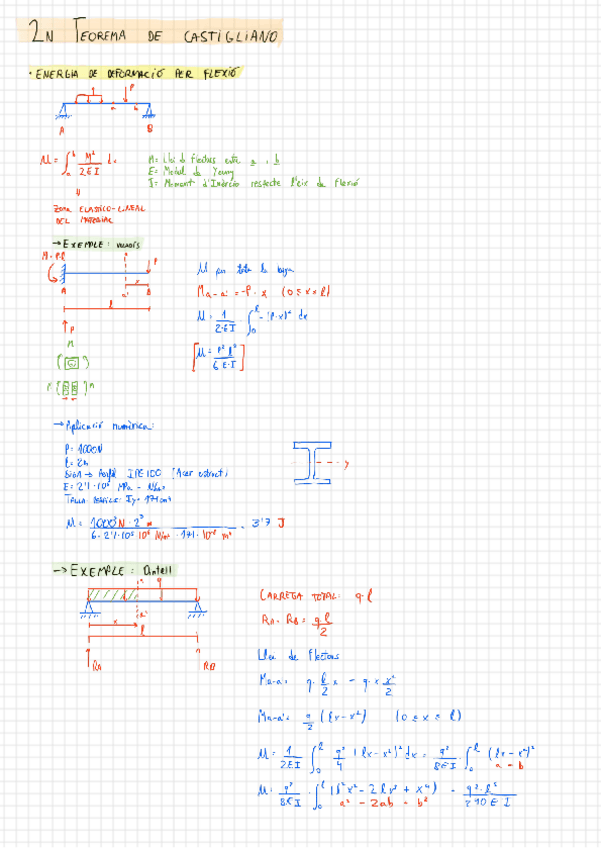 2N TEOREMA DE CASTIGLIANO
· ENERGIA DE DEFORMACIÓ PER FLEXIÓ
P
A B
U = ∫ₐᵇ M²/2EI dx
M = Llei de flectors entre a i b
E = Mòdul de Young
I = Moment d'Inèrcia respecte l'eix de flexió
ZONA ELÀSTICO-LINEAL
DEL MATERIAL
→ EXEMPLE: voladís
M = P·l
P
A a' B
x
l
P
M
M per tota la biga
Ma-a' = -P·x (0 ≤ x ≤ l)
U = 1/2·E·I ∫₀ˡ -(P·x)² dx
[U = P² l³/6·E·I]
→ Aplicació numèrica:
P = 1000N
l = 2m
BIGA → Perfil IPE 100 (Acer estruct.)
E = 2'1·10⁵ MPa
Iy = 171 cm⁴
y
U = 1000² N · 2³ m / 6 · 2'1·10⁵ 10⁶ N/m² · 171 · 10⁻⁸ m⁴ = 3'7 J
→ EXEMPLE: Dintell
q
a'
x
l
RA RB
CÀRREGA TOTAL: q·l
RA = RB = q·l/2
Llei de Flectors
Ma-a' = q·l/2 x - q·x x/2
Ma-a' = q/2 (lx - x²) (0 ≤ x ≤ l)
U = 1/2EI ∫₀ˡ q²/4 (lx - x²)² dx = q²/8EI · ∫₀ˡ (lx - x²)²
a - b
U = q²/8EI · ∫₀ˡ (l²x² - 2lx³ + x⁴) = q²·l⁵/240 E I
a² - 2ab - b²